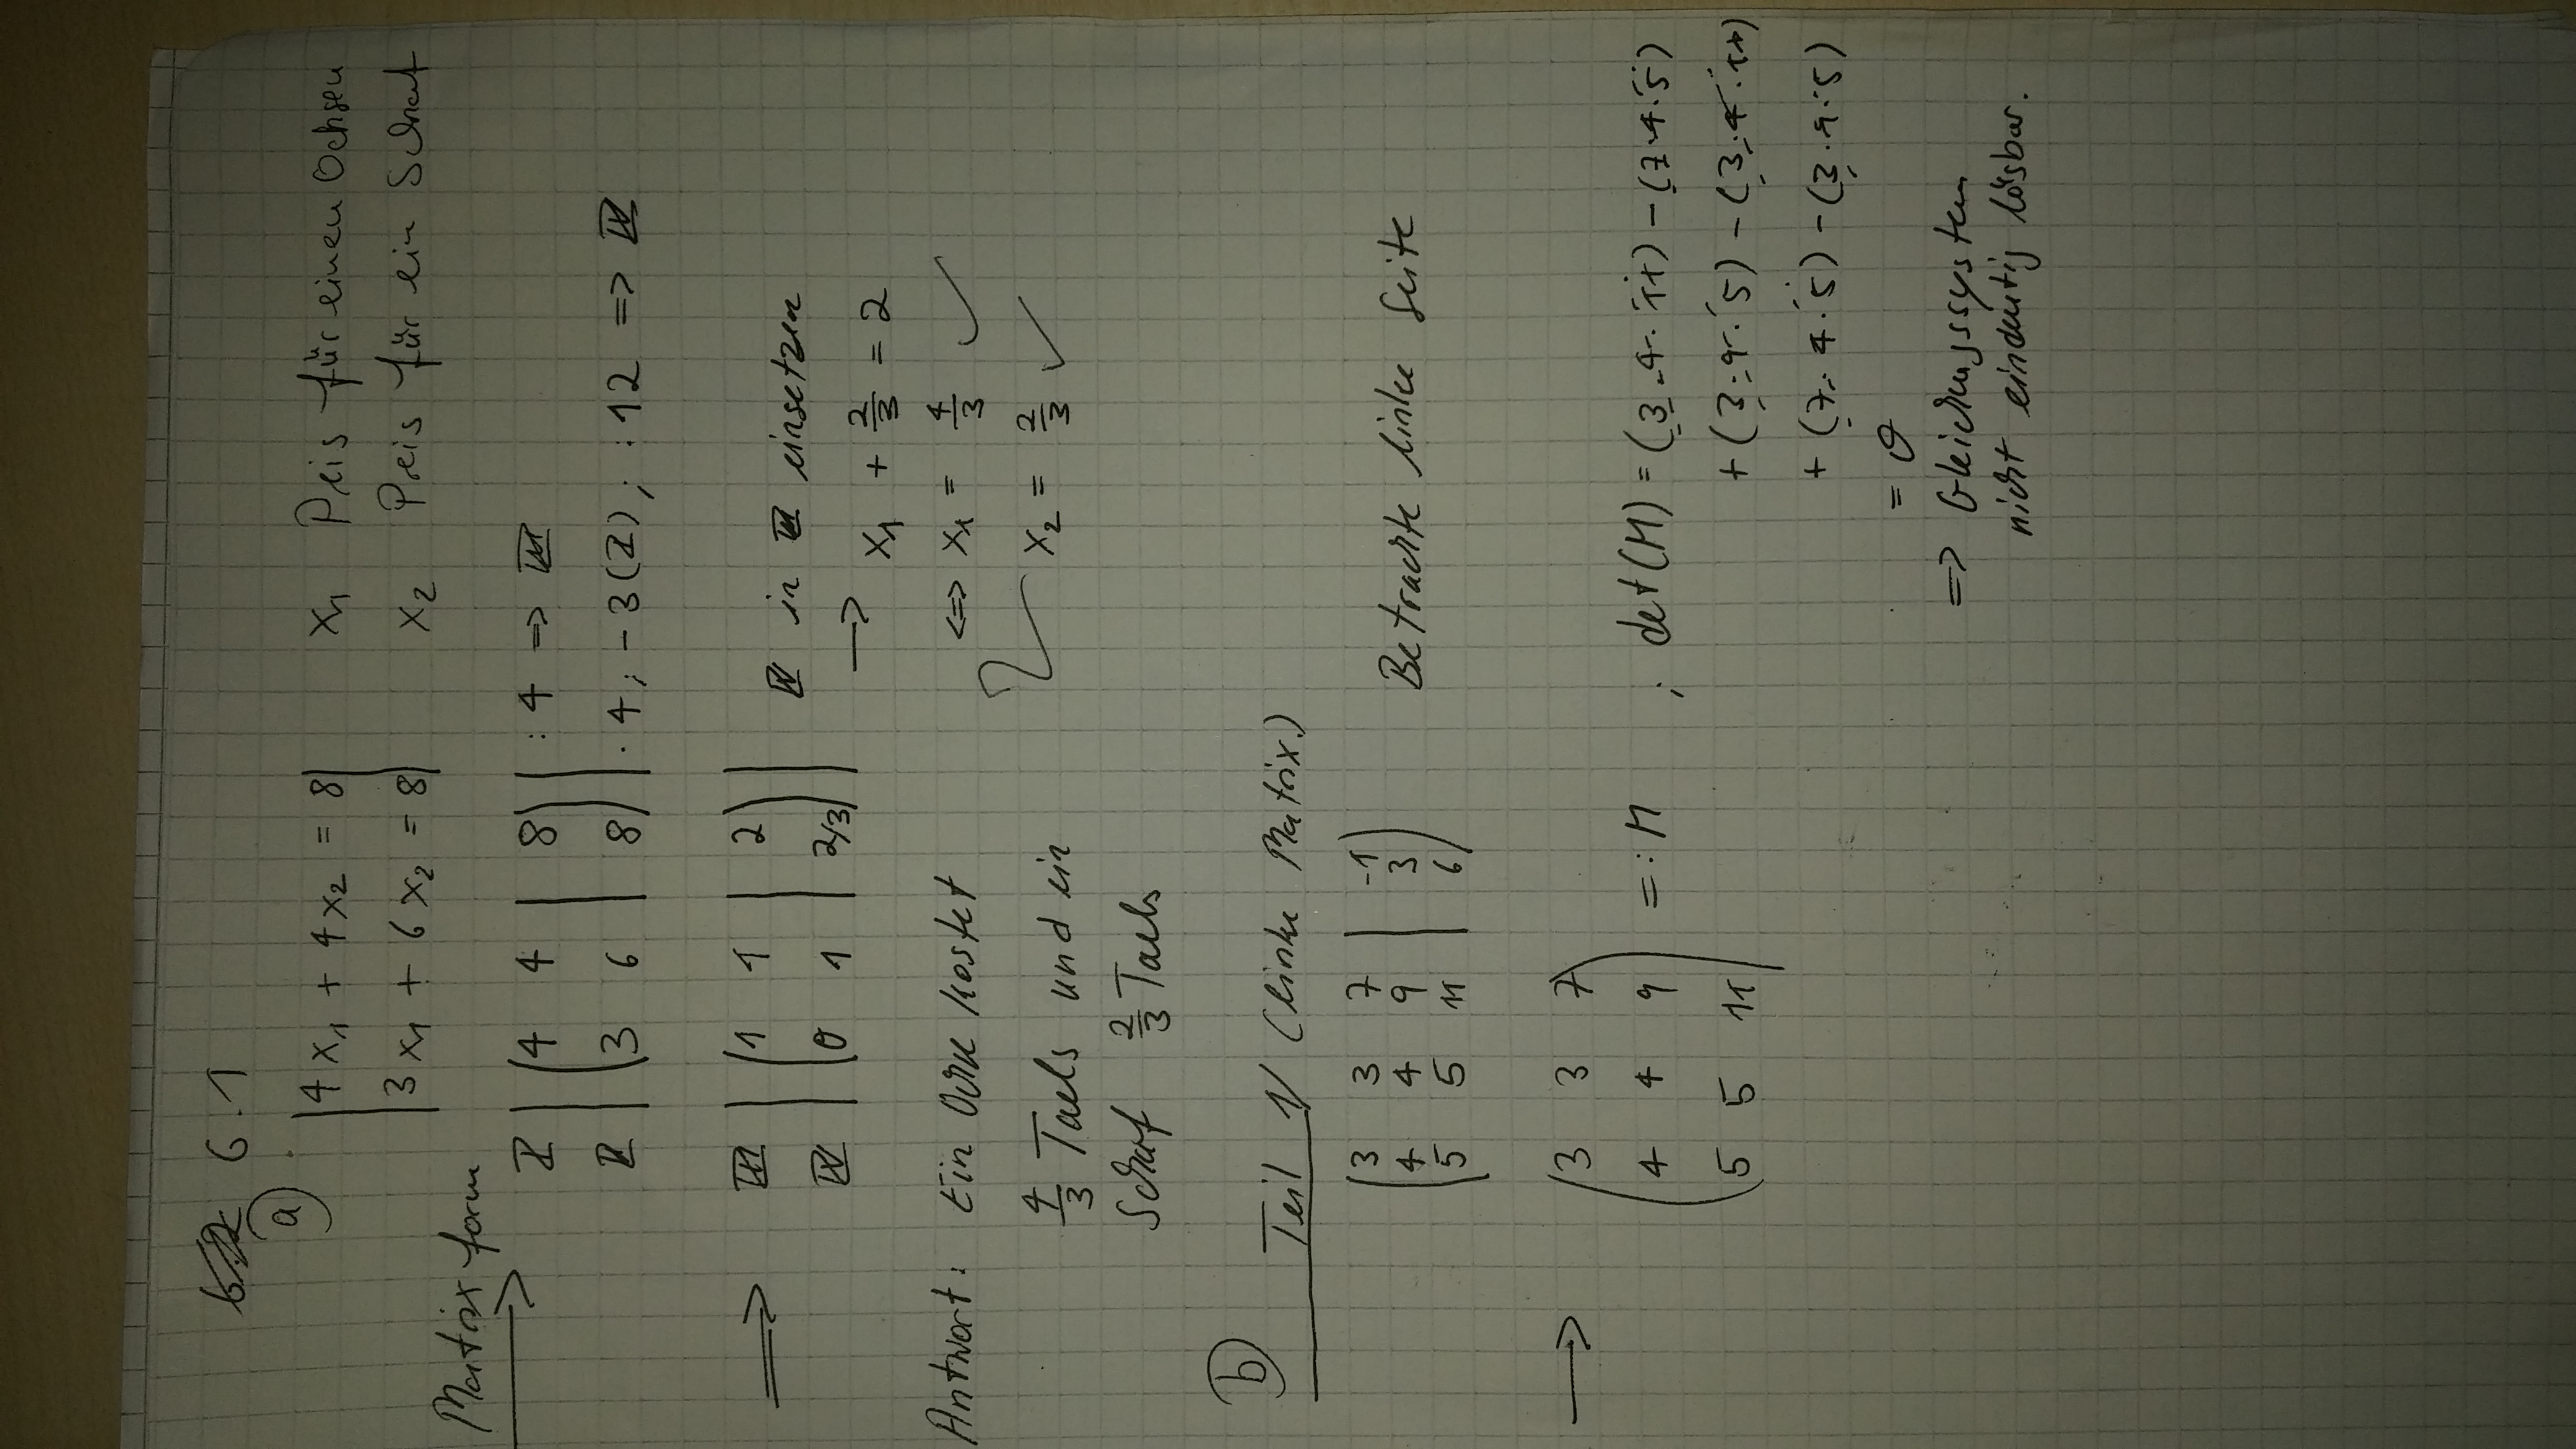 6.1
a)
|4x₁ + 4x₂ = 8| x₁ Preis für einen Ochsen
|3x₁ + 6x₂ = 8| x₂ Preis für ein Schaf
Matrixform
→
I | (4 4 | 8) | : 4 => III
II | (3 6 | 8) | · 4 ; -3(I) ; : 12 => IV
=> III | (1 1 | 2) |
IV | (0 1 | 2/3) |
IV in III einsetzen
→ x₁ + 2/3 = 2
<=> x₁ = 4/3 ✓
x₂ = 2/3 ✓
Antwort: Ein Ochse kostet
4/3 Taels und ein
Schaf 2/3 Taels
b)
Teil 1/ (linke Matrix.)
(3 3 7 | -1)
(4 4 9 | 3) Betrachte linke Seite
(5 5 11 | 6)
→ (3 3 7)
(4 4 9) =: M ; det(M) = (3·4·11) - (7·4·5)
(5 5 11) + (3·9·5) - (3·4·11)
+ (7·4·5) - (3·9·5)
= 0
=> Gleichungssystem
nicht eindeutig lösbar.